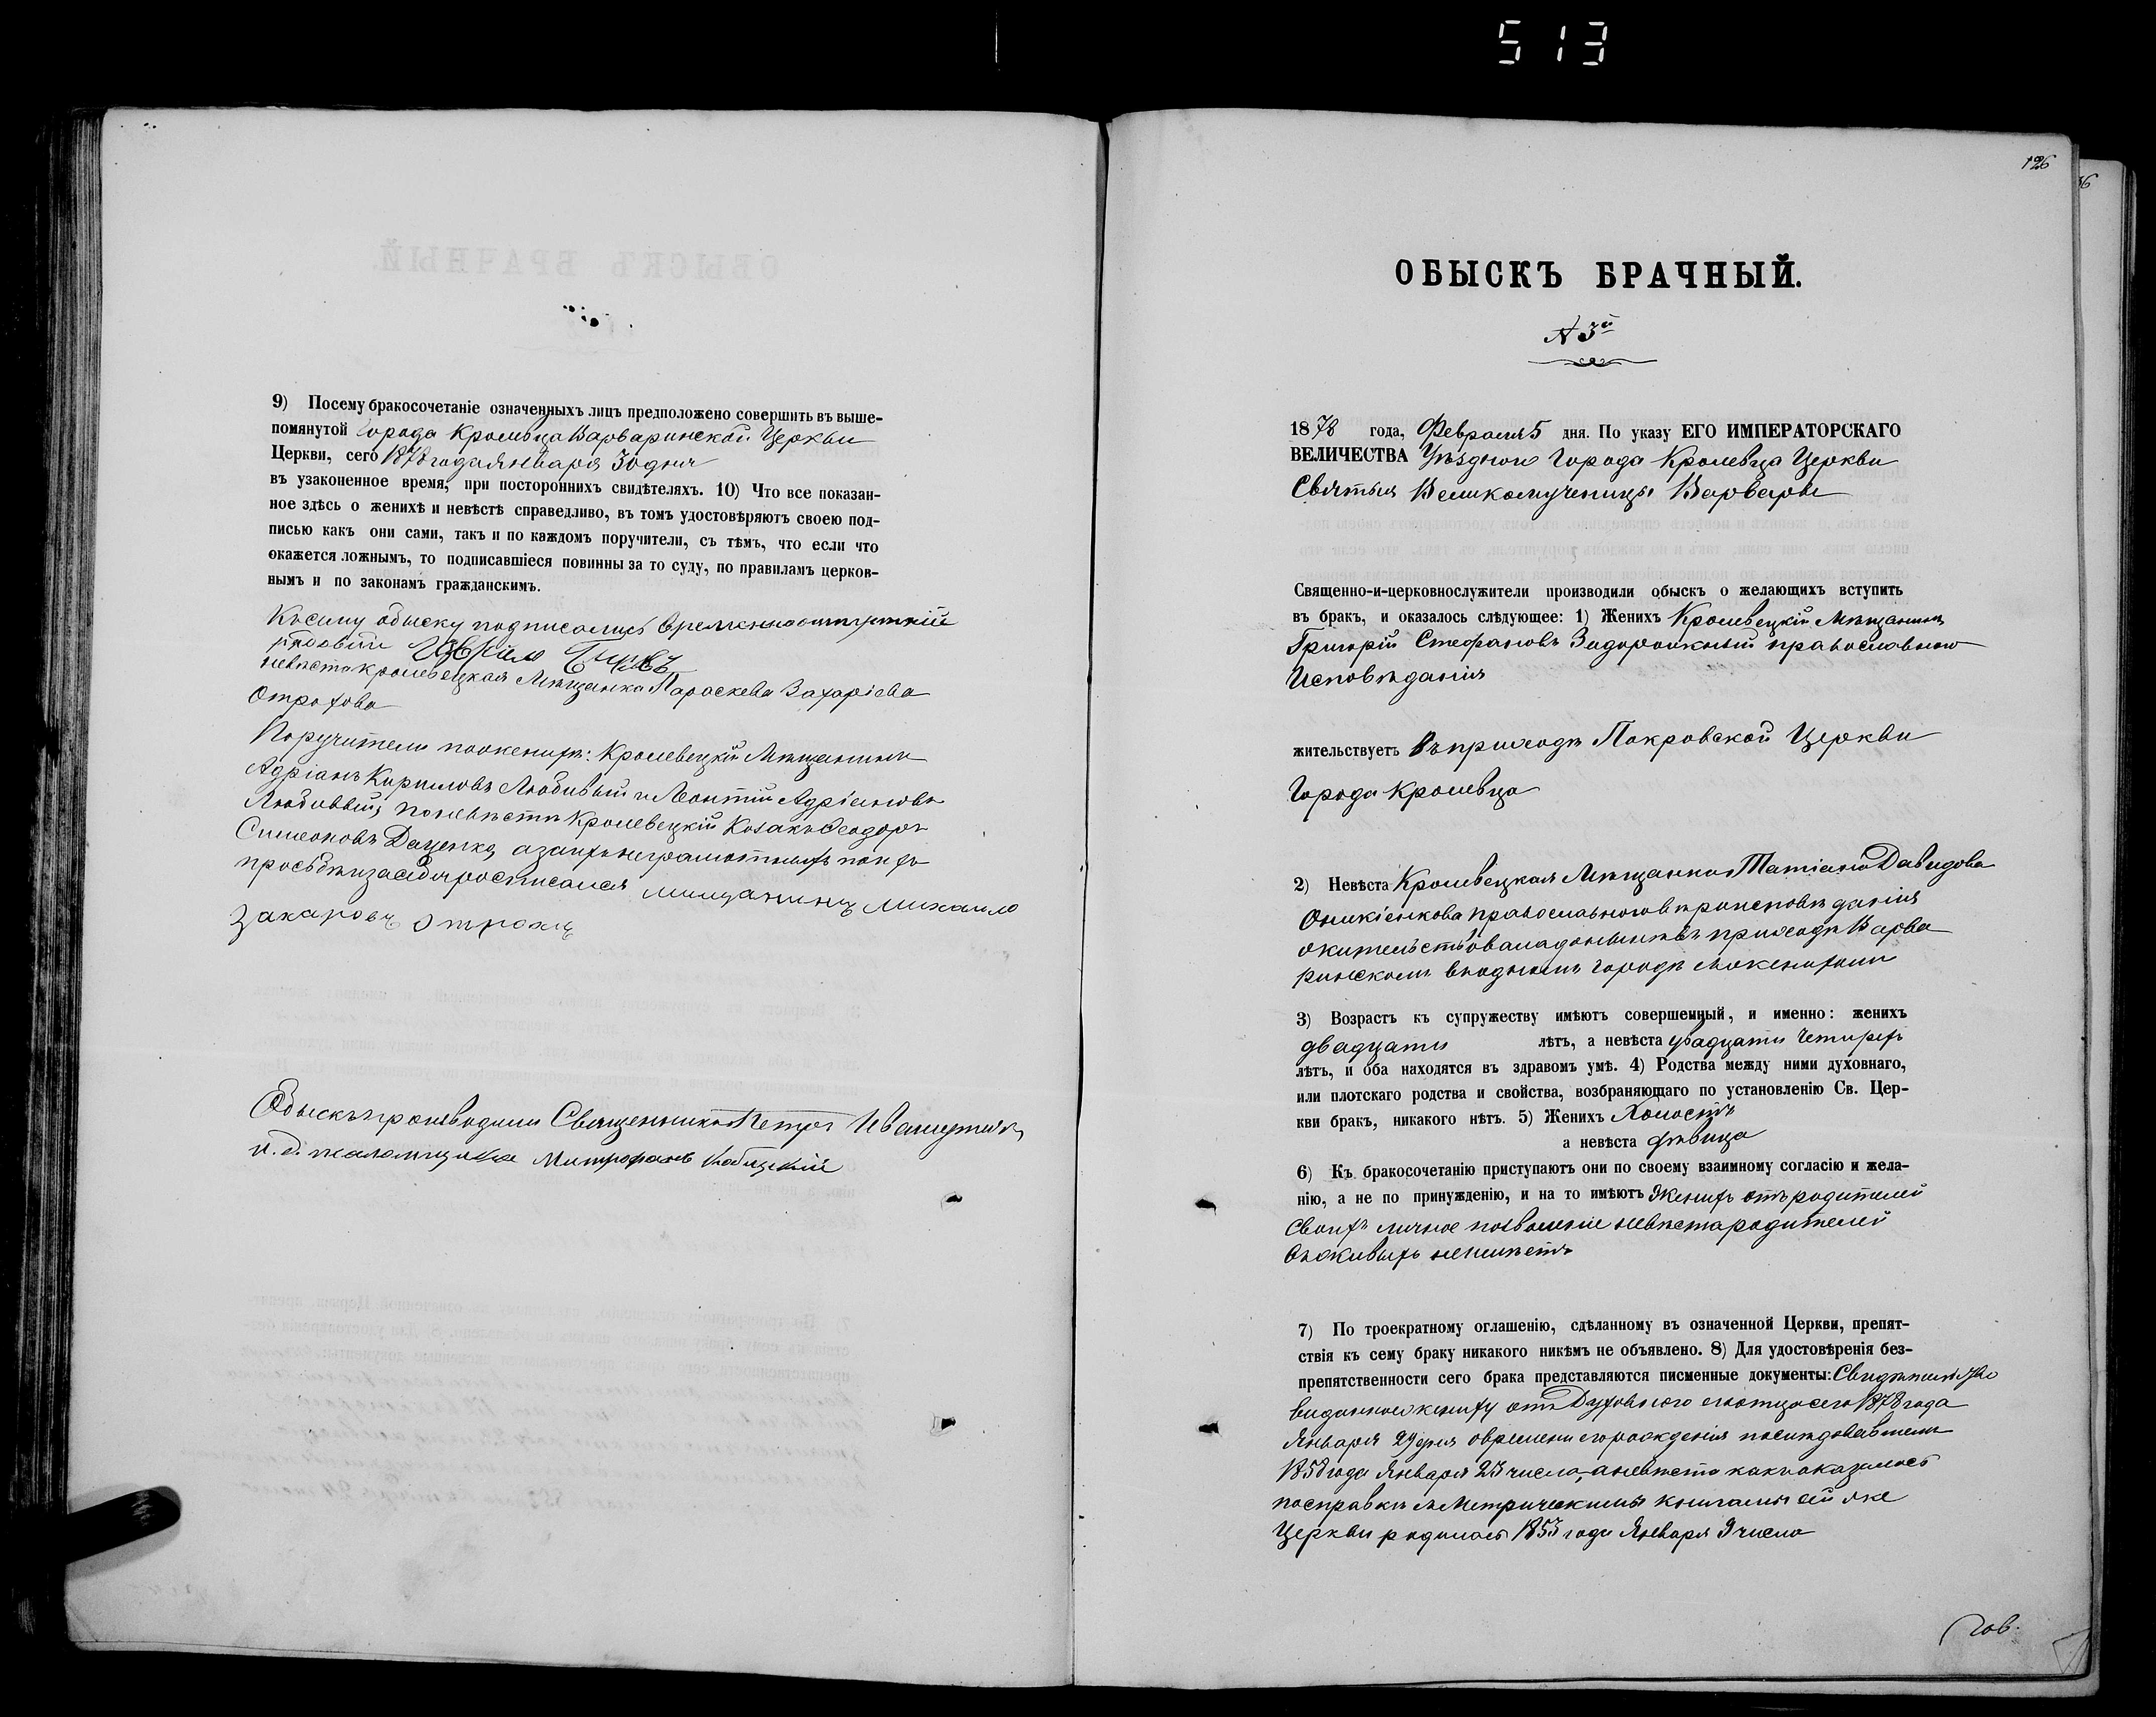 513
9) Посему бракосочетаніе означенныхъ лицъ предположено совершить въ выше-
помянутой города Кролевца Варваринской Церкви
Церкви, сего 1878 года Января 30 дня
въ узаконенное время, при постороннихъ свидѣтеляхъ. 10) Что все показан-
ное здѣсь о женихѣ и невѣстѣ справедливо, въ томъ удостовѣряютъ своею под-
писью какъ они сами, такъ и по каждомъ поручители, съ тѣмъ, что если что
окажется ложнымъ, то подписавшіеся повинны за то суду, по правиламъ церков-
нымъ и по законамъ гражданскимъ.
Къ сему обыску подписались временно отпускній
рядовый
невѣста кролевецкая Мѣщанка Параскева Захаріева
Отрохова
Поручители по женихѣ: Кролевецкій Мѣщанинъ
Адріанъ Кириловъ Любивый и Леонтій Адріановъ
Любивый; по невѣстѣ Кролевецкій Козакъ Ѳеодоръ
Симеоновъ Даценко, а за ихъ неграмотныхъ по ихъ
прозьбѣ и за себя росписался мищанинъ Михаило
Захаровъ Отрохъ
Обыскъ производили Священникъ Петръ
и. д. псаломщика Митрофанъ
126
36
ОБЫСКЪ БРАЧНЫЙ.
№ 3й
1878 года, Февраля 5 дня. По указу ЕГО ИМПЕРАТОРСКАГО
ВЕЛИЧЕСТВА Уѣзднаго Города Кролевца Церкви
Святыя Великомученицы Варвары
Священно-и-церковнослужители производили обыскъ о желающихъ вступить
въ бракъ, и оказалось слѣдующее: 1) Женихъ Кролевецкій Мѣщанинъ
Григорій Стефановъ Задорожный православнаго
Исповѣданія
жительствуетъ въ приходѣ Покровской Церкви
Города Кролевца
2) Невѣста Кролевецкая Мѣщанка Татіана Давидова
Оникіенкова православнаго вѣроисповѣданія
жительствовала донынѣ въ приходѣ Варва
ринскомъ въ одномъ городѣ съ женихомъ
3) Возрастъ къ супружеству имѣютъ совершенный, и именно: женихъ
двадцати лѣтъ, а невѣста двадцати четырехъ
лѣтъ, и оба находятся въ здравомъ умѣ. 4) Родства между ними духовнаго,
или плотскаго родства и свойства, возбраняющаго по установленію Св. Цер-
кви бракъ, никакого нѣтъ. 5) Женихъ Холостъ
а невѣста дѣвица
6) Къ бракосочетанію приступаютъ они по своему взаимному согласію и жела-
нію, а не по принужденію, и на то имѣютъ Женихъ отъ родителей
своихъ личное позволеніе невѣста родителей
въ живыхъ не имѣетъ
7) По троекратному оглашенію, сдѣланному въ означенной Церкви, препят-
ствія къ сему браку никакого никѣмъ не объявлено. 8) Для удостовѣренія без-
препятственности сего брака представляются писменные документы: Свидѣтельство
виданное жениху отъ Духовного его отца сего 1878 года
Января 29 дня о времени его рожденія послѣдовавшемъ
1858 года Января 25 числа, а невѣста какъ оказалось
по справкѣ съ Метрическими книгами сей же
Церкви родилась 1853 года Января 3 числа